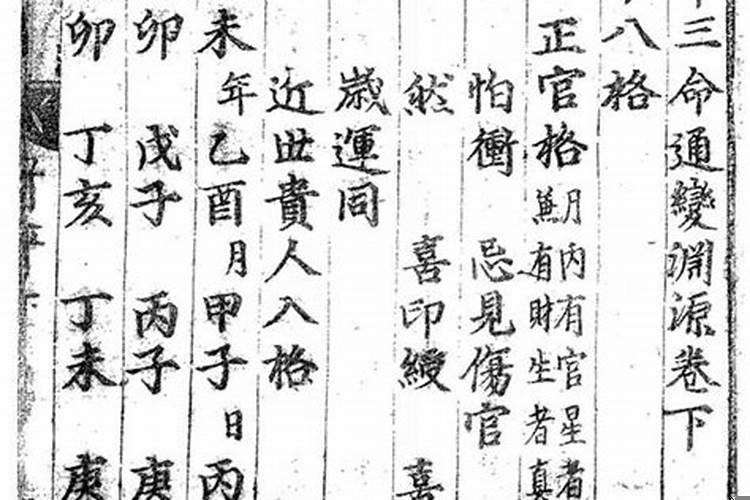 三命通變淵源卷下
八格
正官格月内有官星者兼有財生者真
怕衝 忌見傷官
然 喜印綬 喜
歲運同
近世貴人入格
未年乙酉月甲子日丙
卯 戊子 丙子 庚
卯 丁亥 丁未 庚